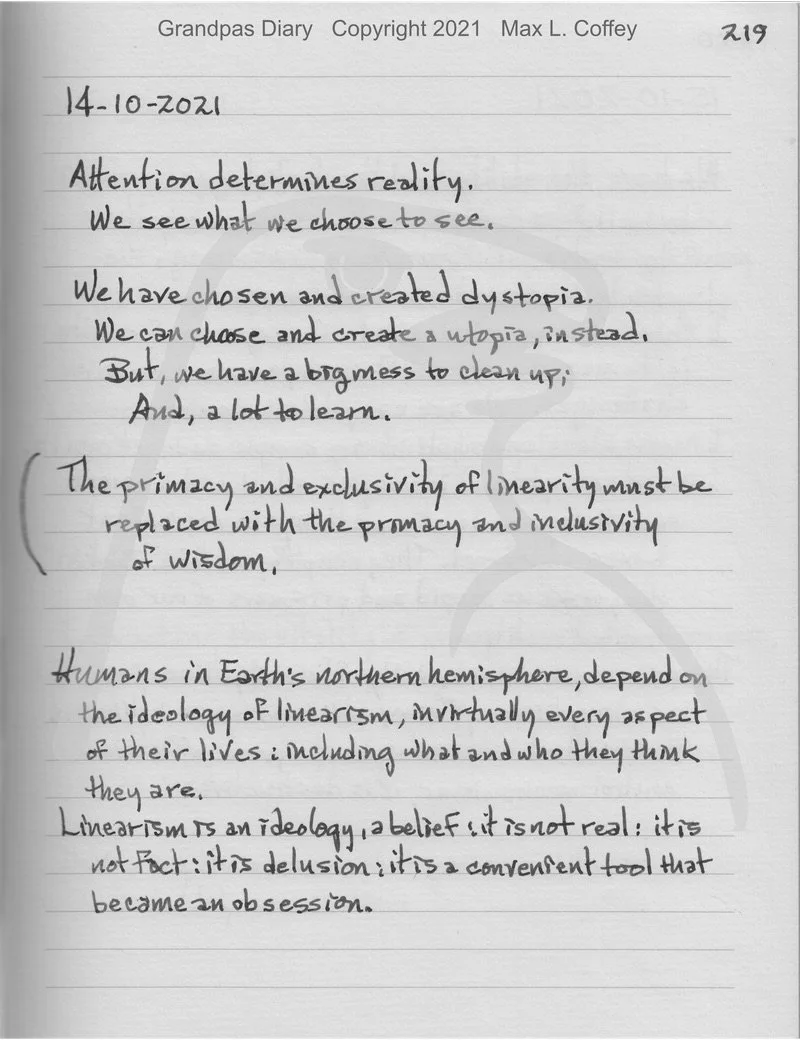 Grandpas Diary Copyright 2021 Max L. Coffey
219
14-10-2021
Attention determines reality.
We see what we choose to see.
We have chosen and created dystopia.
We can choose and create a utopia, instead.
But, we have a big mess to clean up;
And, a lot to learn.
The primacy and exclusivity of linearity must be
replaced with the primacy and inclusivity
of wisdom.
Humans in Earth's northern hemisphere, depend on
the ideology of linearism, in virtually every aspect
of their lives: including what and who they think
they are.
Linearism is an ideology, a belief: it is not real: it is
not fact: it is delusion: it is a convenient tool that
became an obsession.